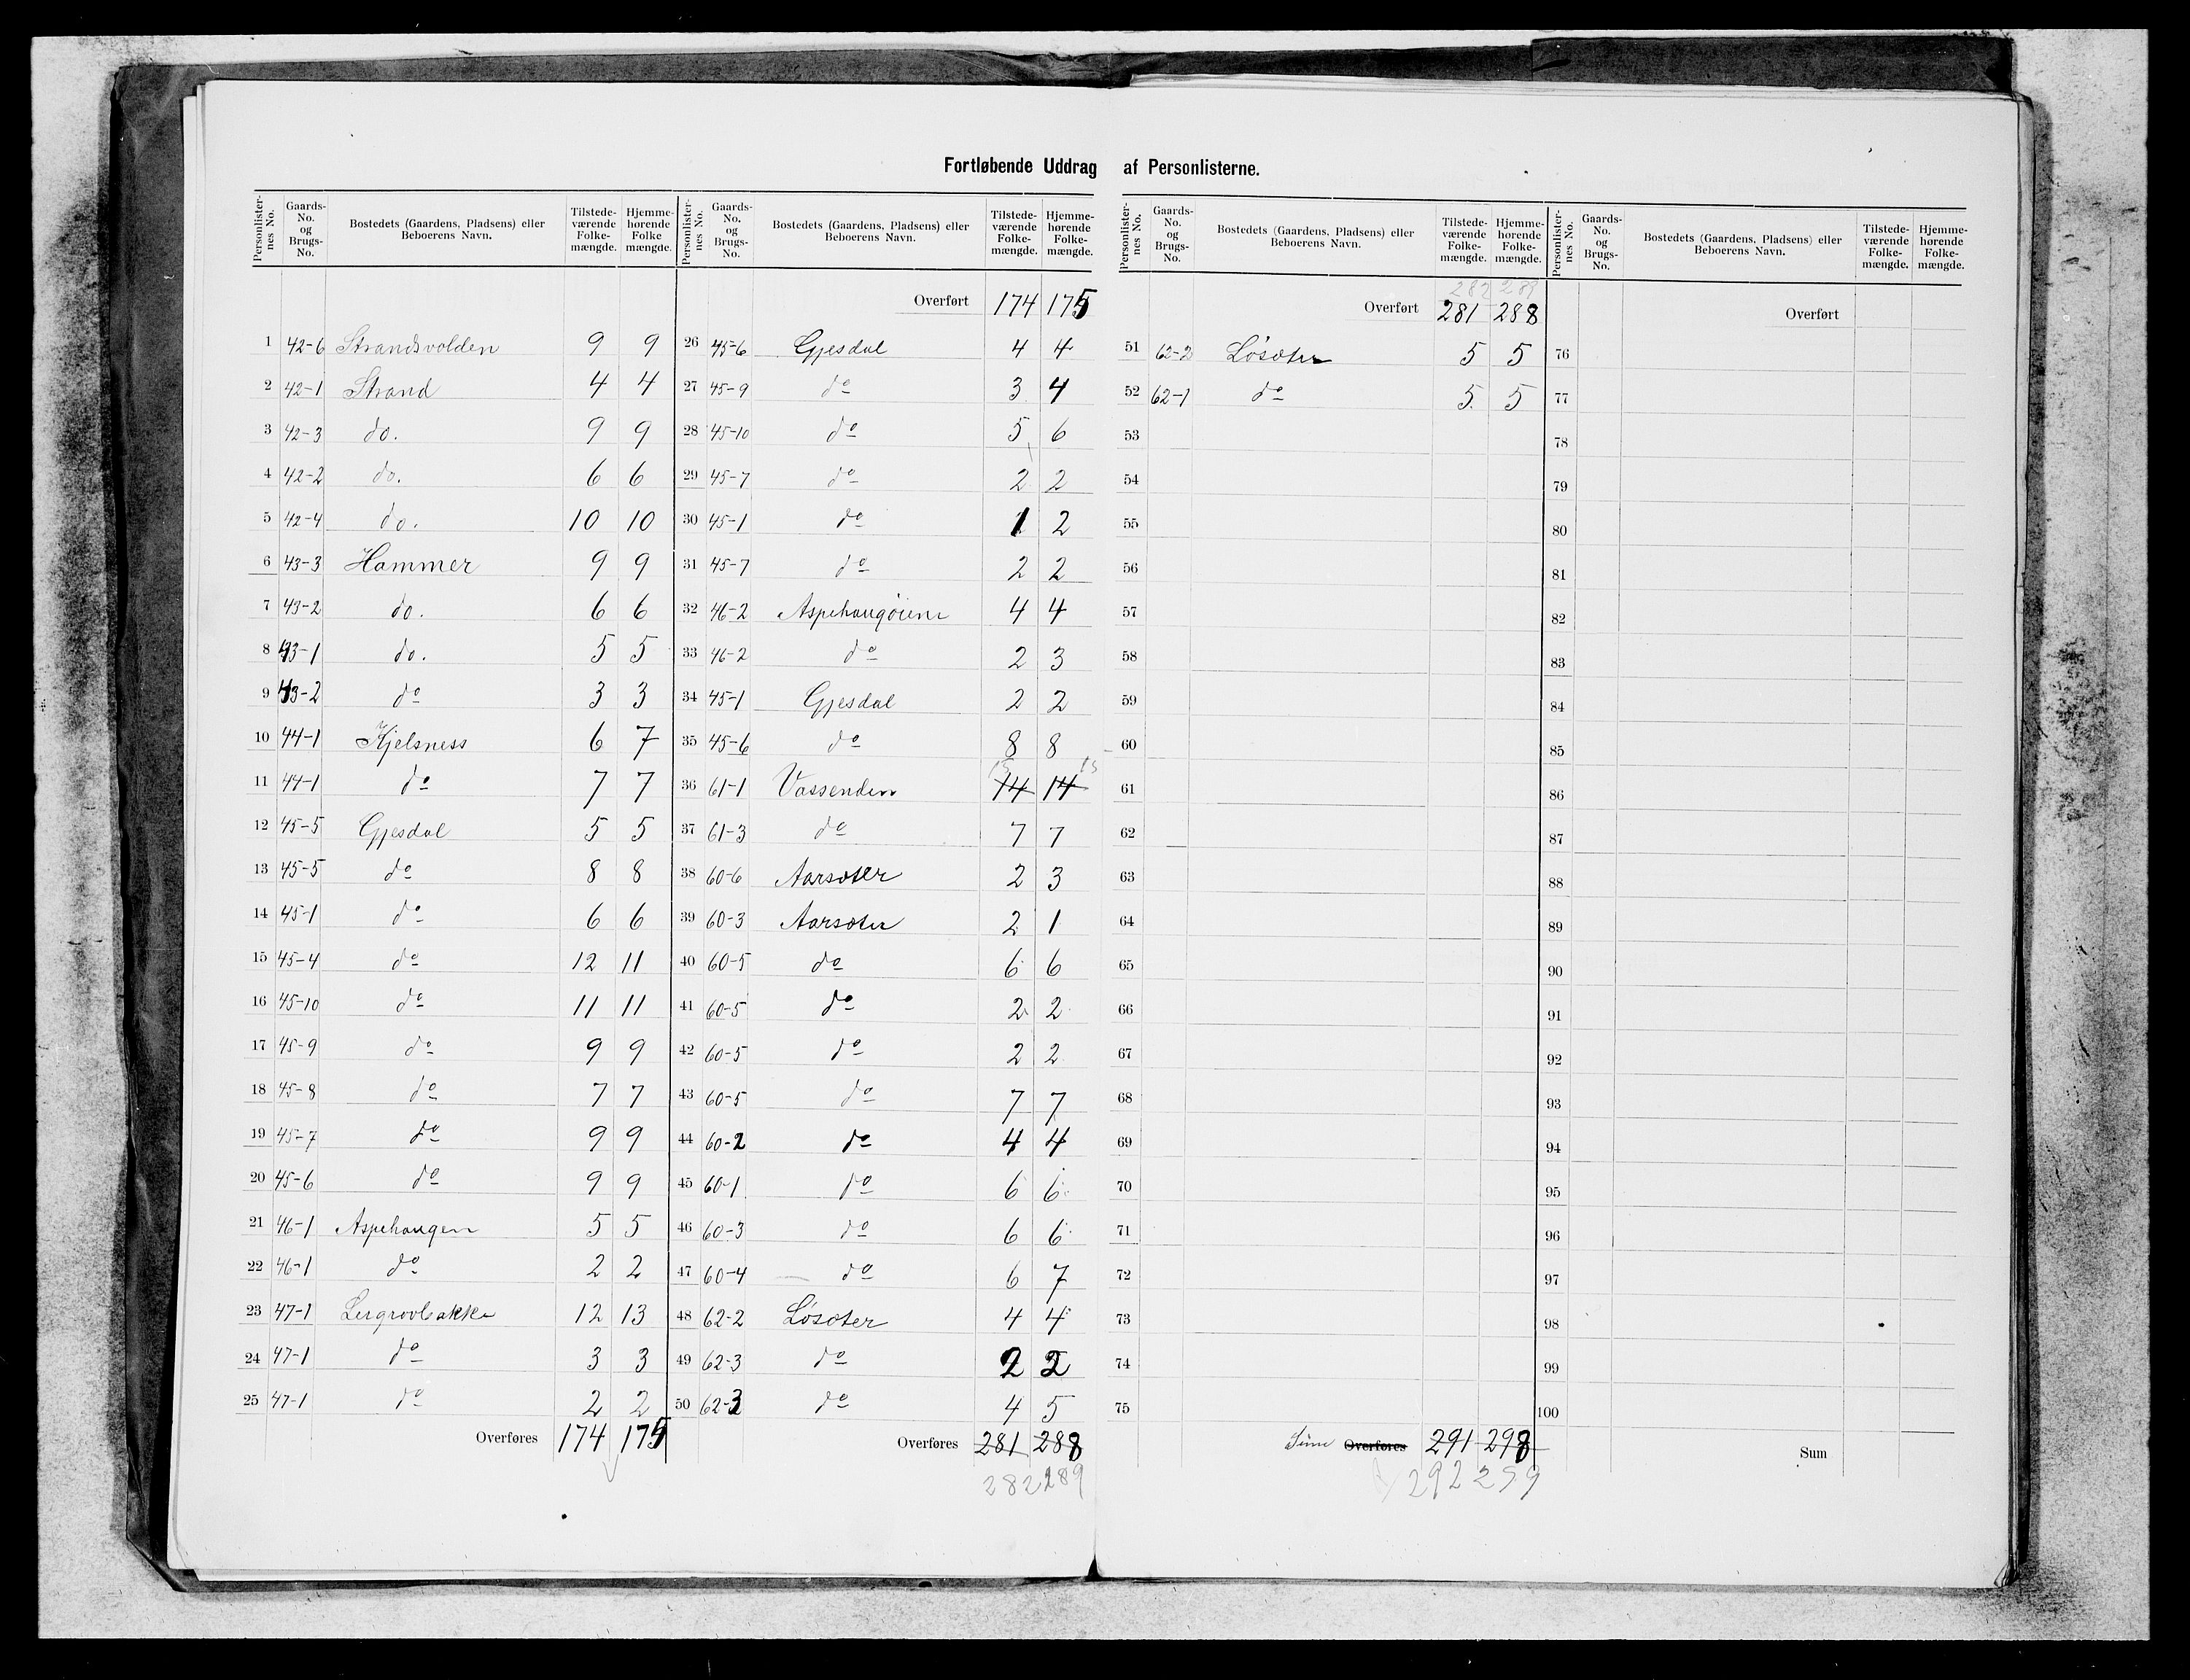 Fortløbende Uddrag af Personlisterne.
Personlister-nes No. Gaards-No. og Brugs-No. Bostedets (Gaardens, Pladsens) eller Beboerens Navn. Tilstede-værende Folke-mængde. Hjemme-hørende Folke mængde.
1 42-6 Strandsvolden 9 9
2 42-1 Strand 4 4
3 42-3 do. 9 9
4 42-2 do. 6 6
5 42-4 do. 10 10
6 43-3 Hammer 9 9
7 43-2 do. 6 6
8 43-1 do. 5 5
9 43-2 do 3 3
10 44-1 Kjelsness 6 7
11 44-1 do 7 7
12 45-5 Gjesdal 5 5
13 45-5 do 8 8
14 45-1 do 6 6
15 45-4 do 12 11
16 45-10 do 11 11
17 45-9 do 9 9
18 45-8 do 7 7
19 45-7 do 9 9
20 45-6 do 9 9
21 46-1 Aspehaugen 5 5
22 46-1 do 2 2
23 47-1 Lergrovbakke 12 13
24 47-1 do 3 3
25 47-1 do 2 2
Overføres 174 175
Personlister-nes No. Gaards-No. og Brugs-No. Bostedets (Gaardens, Pladsens) eller Beboerens Navn. Tilstede-værende Folke-mængde. Hjemme-hørende Folke-mængde.
Overført 174 175
26 45-6 Gjesdal 4 4
27 45-9 do 3 4
28 45-10 do 5 6
29 45-7 do 2 2
30 45-1 do 1 2
31 45-7 do 2 2
32 46-2 Aspehaugøien 4 4
33 46-2 do 2 3
34 45-1 Gjesdal 2 2
35 45-6 do 8 8
15 15
36 61-1 Vassenden 14 14
37 61-3 do 7 7
38 60-6 Aarsæter 2 3
39 60-3 Aarsæter 2 1
40 60-5 do 6 6
41 60-5 do 2 2
42 60-5 do 2 2
43 60-5 do 7 7
44 60-2 do 4 4
45 60-1 do 6 6
46 60-3 do 6 6
47 60-4 do 6 7
48 62-2 Løsæter 4 4
49 62-3 do 2 2
50 62-3 do 4 5
Overføres 281 288
282 289
Personlister-nes No. Gaards-No. og Brugs-No. Bostedets (Gaardens, Pladsens) eller Beboerens Navn. Tilstede-værende Folke-mængde. Hjemme-hørende Folke-mængde.
282 289
Overført 281 288
51 62-2 Løsæter 5 5
52 62-1 do 5 5
53
54
55
56
57
58
59
60
61
62
63
64
65
66
67
68
69
70
71
72
73
74
75
Sum Overføres 291 298
292 299
Personlister-nes No. Gaards-No. og Brugs-No. Bostedets (Gaardens, Pladsens) eller Beboerens Navn. Tilstede-værende Folke-mængde. Hjemme-hørende Folke-mængde.
Overført
76
77
78
79
80
81
82
83
84
85
86
87
88
89
90
91
92
93
94
95
96
97
98
99
100
Sum